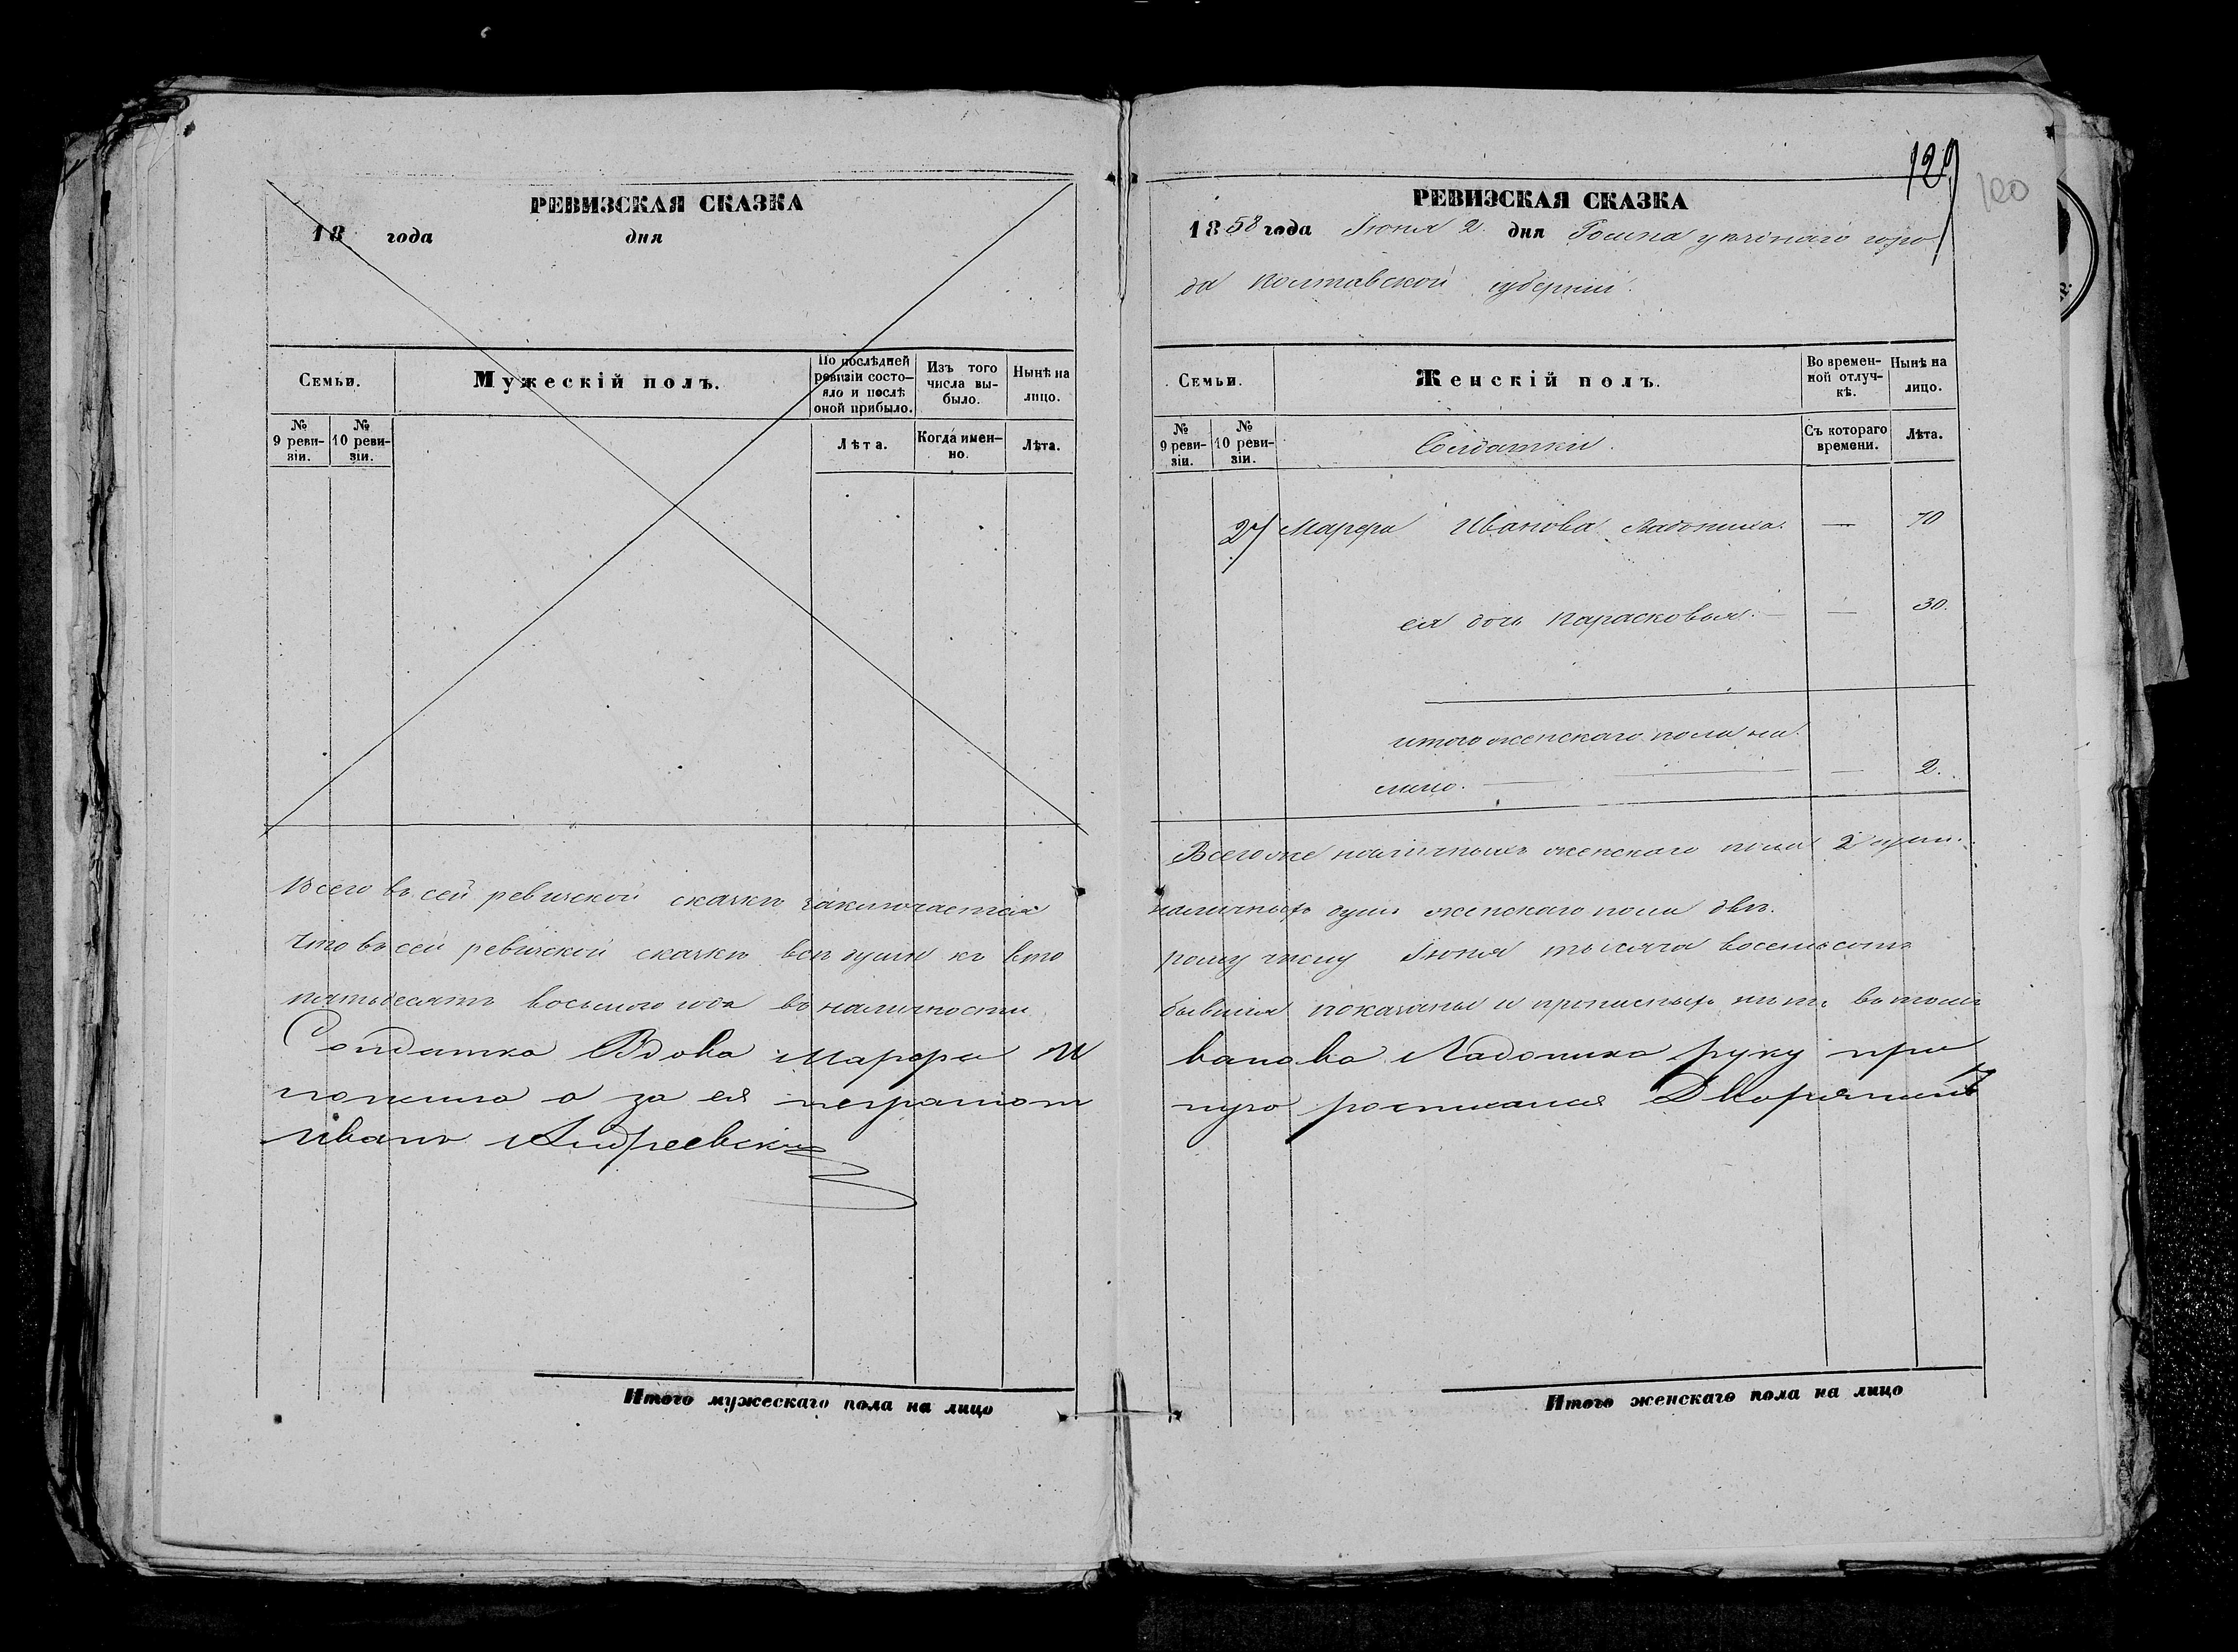 РЕВИЗСКАЯ СКАЗКА
18 года дня
Семьи.
Мужескій полъ.
По послѣдней ревизіи состояло и послѣ оной прибыло.
Изъ того числа выбыло.
Нынѣ на лицо.
№ 9 ревизіи.
№ 10 ревизіи.
Лѣта.
Когда именно.
Лѣта.
Всего въ сей ревизской сказкѣ заключается
Что въ сей ревизской сказкѣ всѣ души ко вто
пятьдесятъ восьмого года въ наличности
Солдатка Вдова Марфа И
ложила а за ея неграмот
Иванъ Андреевскій
Итого мужескаго пола на лицо
129
100
РЕВИЗСКАЯ СКАЗКА
1858 года Іюня 2 дня уѣзднаго горо
да Полтавской губерніи.
Семьи.
Женскій полъ.
Во временной отлучкѣ.
Нынѣ на лицо.
№ 9 ревизіи.
№ 10 ревизіи.
Солдатки.
Съ котораго времени.
Лѣта.
27 Марфа Иванова Ладониха. — 70
ея дочь Парасковья. — — 30.
итого женскаго пола на
лицо. — — — 2.
Всего же наличныхъ женскаго пола 2 души.
наличныхъ душъ женскаго пола двѣ.
рому числу Іюня тысяча восемьсотъ
бывшія показаны и прописныхъ нѣтъ въ томъ
ванова Ладониха руку при
ную росписался Дворянинъ
Итого женскаго пола на лицо